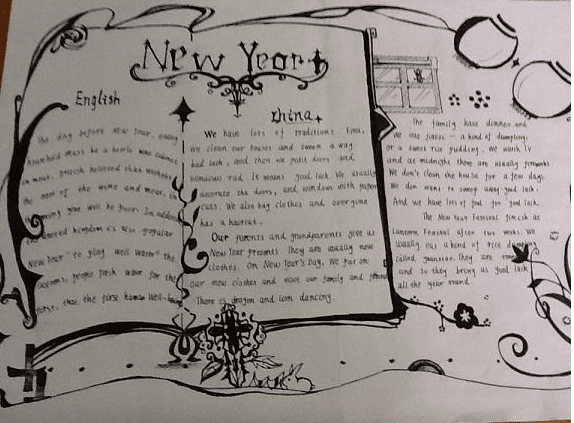 New Year
English
The day before New Year, every
household must be a bottle wine cabinet
in meat. British believed that without
the rest of the wine and meat, in
coming year will be poor. In addition
the united kingdom is also popular
New Year "to play well water" the
customs, people fetch water for the
first, that the first human well-
China
We have lots of traditions. First,
We clean our houses and sweep a way
bad luck. and then we paint doors and
windows red. It means good luck. We usually
decorate the doors, and windows with paper
cuts. We also buy clothes and everyone
has a haircut.
Our parents and grandparents give us
New Year presents. They are usually new
clothes. On New Year's Day, We put on
our new clothes and visit our family and
There is dragon and lion dancing.
The family have dinner and
We eat jiaozi - a kind of dumpling,
or a sweet rice pudding. We watch TV
and at midnight there are usually fireworks
We don't clean the house for a few days.
We don want to sweep away good luck.
And we have lots of food for good luck.
The New Year Festival finish at
Lantern Festival after two weeks. We
usually eat a kind of rice
called yuanxiao. They are
and so they bring us good luck
all the year round.